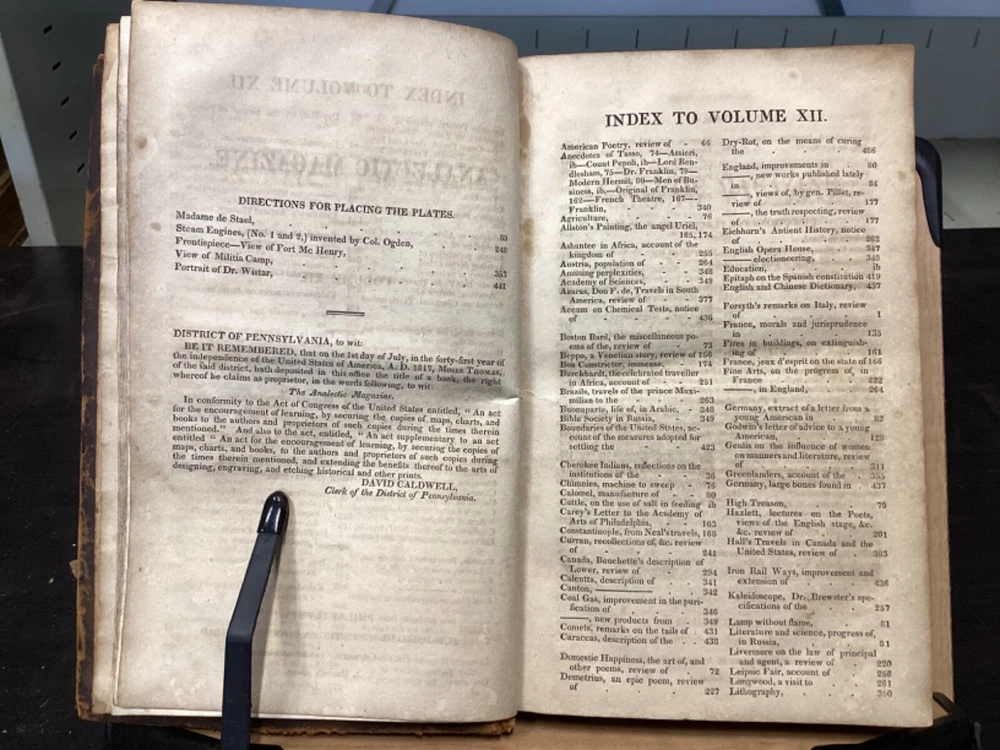 DIRECTIONS FOR PLACING THE PLATES.
Madame de Stael, 85
Steam Engines, (No. 1 and 2,) invented by Col. Ogden, 249
Frontispiece—View of Fort Mc Henry,
View of Militia Camp, 353
Portrait of Dr. Wistar, 441
DISTRICT OF PENNSYLVANIA, to wit:
BE IT REMEMBERED, that on the 1st day of July, in the forty-first year of
the independence of the United States of America, A. D. 1817, MOSES THOMAS,
of the said district, hath deposited in this office the title of a book, the right
whereof he claims as proprietor, in the words following, to wit:
The Analectic Magazine.
In conformity to the Act of Congress of the United States entitled, "An act
for the encouragement of learning, by securing the copies of maps, charts, and
books to the authors and proprietors of such copies during the times therein
mentioned." And also to the act, entitled, "An act supplementary to an act
entitled "An act for the encouragement of learning, by securing the copies of
maps, charts, and books, to the authors and proprietors of such copies during
the times therein mentioned, and extending the benefits thereof to the arts of
designing, engraving, and etching historical and other prints.
DAVID CALDWELL,
Clerk of the District of Pennsylvania.
INDEX TO VOLUME XII.
American Poetry, review of - 66
Anecdotes of Tasso, 74—Assieri,
ib—Count Pepoli, ib—Lord Ren-
dlesham, 75—Dr. Franklin, 79—
Modern Hermit, 80—Men of Bu-
siness, ib.—Original of Franklin,
162—French Theatre, 167—
Franklin, 340
Agriculture, 76
Allston's Painting, the angel Uriel,
165, 174
Ashantee in Africa, account of the
kingdom of 255
Austria, population of 264
Amusing perplexities, 348
Academy of Sciences, 349
Azaras, Don F. de, Travels in South
America, review of 377
Accum on Chemical Tests, notice
of 436
Boston Bard, the miscellaneous po-
ems of the, review of 73
Beppo, a Venetian story, review of 156
Boa Constrictor, immense, 174
Burckhardt, the celebrated traveller
in Africa, account of 251
Brazils, travels of the prince Maxi-
milian to the 263
Buonaparte, life of, in Arabic, 348
Bible Society in Russia, 349
Boundaries of the United States, ac-
count of the measures adopted for
settling the 423
Cherokee Indians, reflections on the
institutions of the 36
Chimnies, machine to sweep 76
Calomel, manufacture of 80
Cattle, on the use of salt in feeding ib
Carey's Letter to the Academy of
Arts of Philadelphia, 163
Constantinople, from Neal's travels, 168
Curran, recollections of, &c. review
of 241
Canada, Bouchette's description of
Lower, review of 294
Calcutta, description of 341
Canton, ——— 342
Coal Gas, improvement in the puri-
fication of 346
———, new products from 349
Comets, remarks on the tails of 431
Caraccas, description of the 433
Domestic Happiness, the art of, and
other poems, review of 72
Demetrius, an epic poem, review
of 227
Dry-Rot, on the means of curing
the 436
England, improvements in 80
———, new works published lately
in 84
———, views of, by gen. Pillet, re-
view of 177
———, the truth respecting, review
of 177
Eichhorn's Antient History, notice
of 263
English Opera House, 347
——— electioneering, 348
Education, ib
Epitaph on the Spanish constitution 419
English and Chinese Dictionary, 437
Forsyth's remarks on Italy, review
of 1
France, morals and jurisprudence
in 135
Fires in buildings, on extinguish-
ing of 161
France, jeux d'esprit on the state of 166
Fine Arts, on the progress of, in
France 222
———, in England, 264
Germany, extract of a letter from a
young American in 82
Godwin's letter of advice to a young
American, 129
Genlis on the influence of women
on manners and literature, review
of 311
Greenlanders, account of the 355
Germany, large bones found in 437
High Treason, 79
Hazlett, lectures on the Poets,
views of the English stage, &c.
&c. review of 201
Hall's Travels in Canada and the
United States, review of 363
Iron Rail Ways, improvement and
extension of 436
Kaleidoscope, Dr. Brewster's spe-
cifications of the 257
Lamp without flame, 81
Literature and science, progress of,
in Russia, 81
Livermore on the law of principal
and agent, a review of 220
Leipsic Fair, account of 258
Longwood, a visit to 261
Lithography, 350